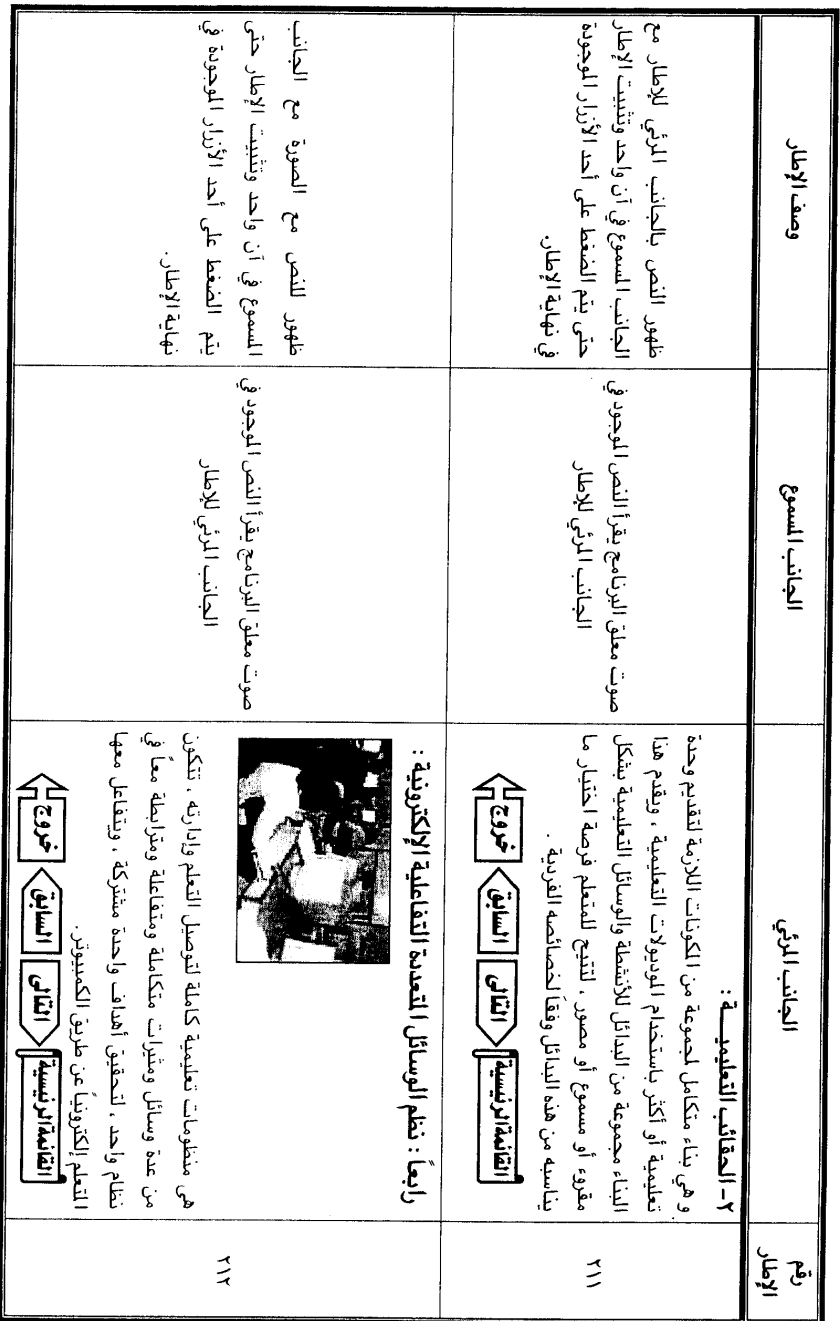 رقم
الإطار
الجانب المرئي
الجانب المسموع
وصف الإطار
٢١١
٢- الحقائب التعليميــــة :
وهي بناء متكامل لمجموعة من المكونات اللازمة لتقديم وحدة
تعليمية أو أكثر باستخدام الموديولات التعليمية ، ويقدم هذا
البناء مجموعة من البدائل للأنشطة والوسائل التعليمية بشكل
مقروء أو مسموع أو مصور ، لتتيح للمتعلم فرصة اختيار ما
يناسبه من هذه البدائل وفقاً لخصائصه الفردية .
القائمة الرئيسية
التالى
السابق
خروج
صوت معلق البرنامج يقرأ النص الموجود في
الجانب المرئي للإطار
ظهور النص بالجانب المرئي للإطار مع
الجانب المسموع في آن واحد وتثبيت الإطار
حتى يتم الضغط على أحد الأزرار الموجودة
في نهاية الإطار.
٢١٢
رابعاً : نظم الوسائل المتعددة التفاعلية الإلكترونية :
هى منظومات تعليمية كاملة لتوصيل التعلم وإدارته ، تتكون
من عدة وسائل ومثيرات متكاملة ومتفاعلة ومترابطة معاً في
نظام واحد ، لتحقيق أهداف واحدة مشتركة ، ويتفاعل معها
المتعلم إلكترونياً عن طريق الكمبيوتر.
القائمة الرئيسية
التالى
السابق
خروج
صوت معلق البرنامج يقرأ النص الموجود في
الجانب المرئي للإطار
ظهور للنص مع الصورة مع الجانب
المسموع في آن واحد وتثبيت الإطار حتى
يتم الضغط على أحد الأزرار الموجودة في
نهاية الإطار.